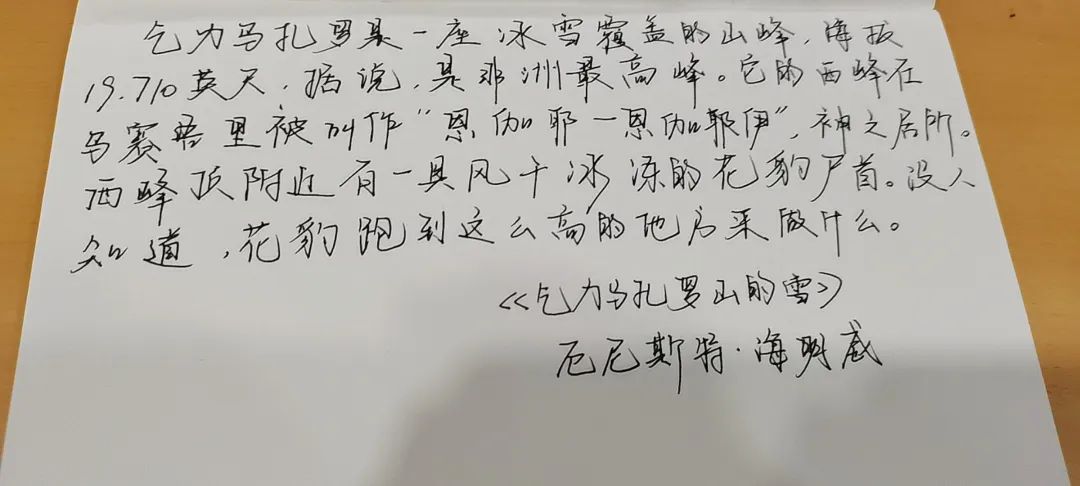 乞力马扎罗是一座冰雪覆盖的山峰，海拔
19.710英尺，据说，是非洲最高峰。它的西峰在
马赛语里被叫作“恩伽耶—恩伽耶伊”，神之居所。
西峰顶附近有一具风干冰冻的花豹尸首。没人
知道，花豹跑到这么高的地方来做什么。
《乞力马扎罗山的雪》
厄尼斯特·海明威